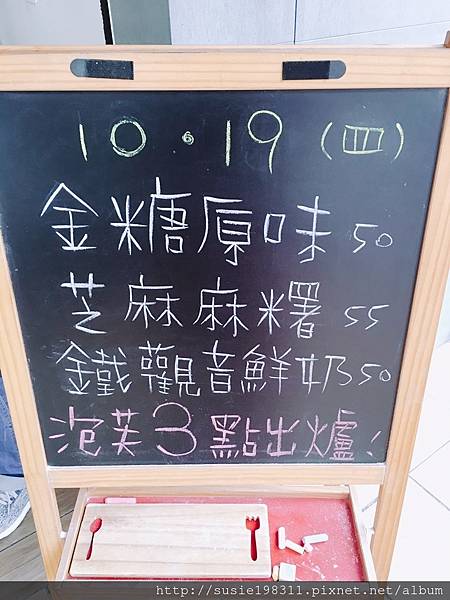 10.19(四)
金糖原味 50
芝麻麻糬 55
鐵觀音鮮奶50
泡芙3點出爐!
http://susie198311.pixnet.net/album